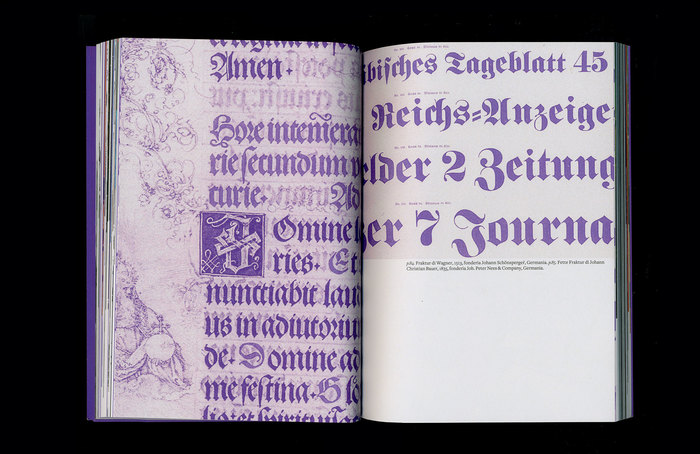 Amen.
Hore intemera
rie secundum
curie. Ad
Domine
ries. Et
nunctiabit lau
us in adiutoriu
de. Domine ad
me festina. Gl
bisches Tageblatt 45
Reichs=Anzeige
elder 2 Zeitung
er 7 Journa
p.84. Fraktur di Wagner, 1513, fonderia Johann Schönsperger, Germania. p.85. Fette Fraktur di Johann
Christian Bauer, 1835, fonderia Joh. Peter Nees & Company, Germania.